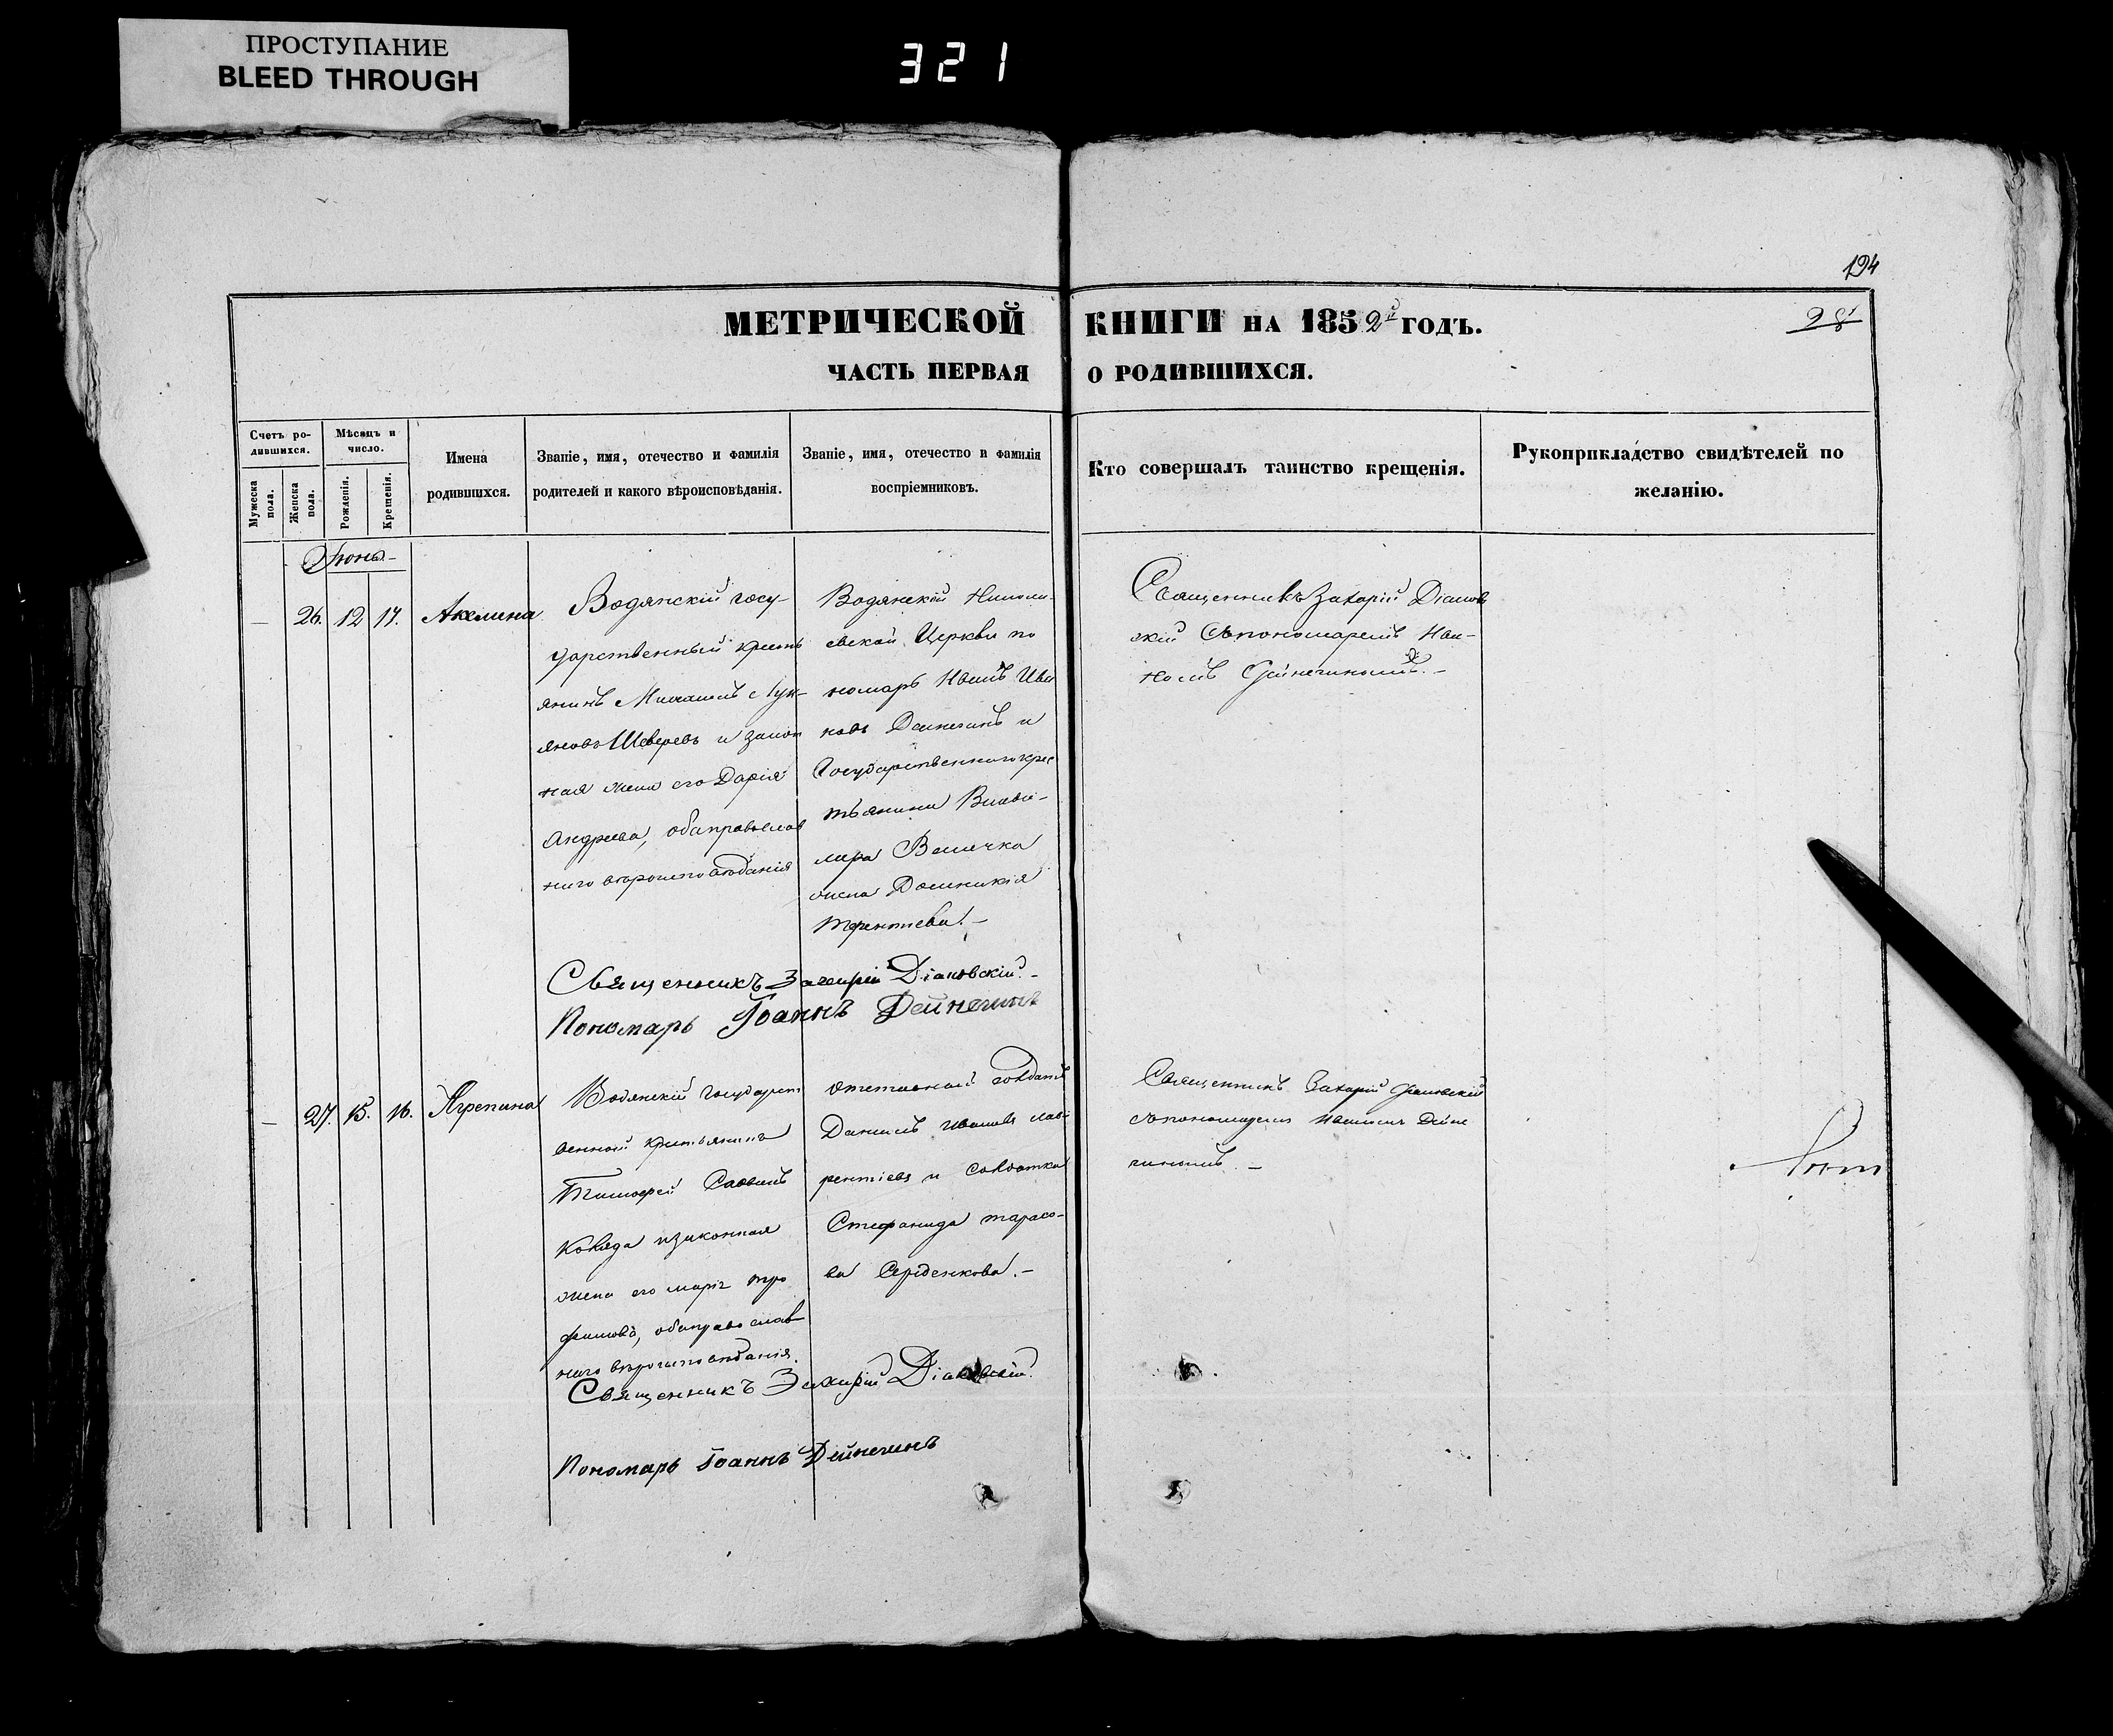 ПРОСТУПАНИЕ
BLEED THROUGH
321
194
28
МЕТРИЧЕСКОЙ КНИГИ НА 1852й ГОДЪ.
ЧАСТЬ ПЕРВАЯ О РОДИВШИХСЯ.
Счетъ ро-
дившихся.
Мужеска пола.
Женска пола.
Мѣсяцъ и
число.
Рожденія.
Крещенія.
Имена
родившихся.
Званіе, имя, отечество и фамилія
родителей и какого вѣроисповѣданія.
Званіе, имя, отечество и фамилія
воспріемниковъ.
Кто совершалъ таинство крещенія.
Рукоприкладство свидѣтелей по
желанію.
Іюнь
— 26. 12 17. Акелина
Водянскій госу-
дарственный кресть
янинъ Лук-
яновъ Шеверевъ и закон
ная жена его Дарія
Андреева, оба православ
наго вѣроисповѣданія
Водянской Никола-
евской Церкви по
номарь Иванъ Ива
новъ Дейнечинъ и
Государственнаго крес
тьянина Влади-
мира Величка
жена Домникія
Терентева. —
Священникъ Захарій Діаковскій. —
Пономарь Іоаннъ Дейнечинъ
Священникъ Захарій Діаков
скій съ пономаремъ Ива-
номъ Дейнечинымъ. —
— 27. 15. 16. Агрепина
Водянскій Государст
венный крестьянинъ
Тимофей Саввинъ
Коляда и законная
жена его марія тро
фимова, оба православ
наго вѣроисповѣданія.
отставной солдатъ
Даниилъ Ивановъ лав
рентіевъ и солдатка
Стефанида тарасо-
ва Серденкова. —
Священникъ Захарій Діаковскій.
Пономарь Іоаннъ Дейнечинъ
Священникъ Захарій Діаковскій
съ пономаремъ Иваномъ Дейне
чинымъ. —